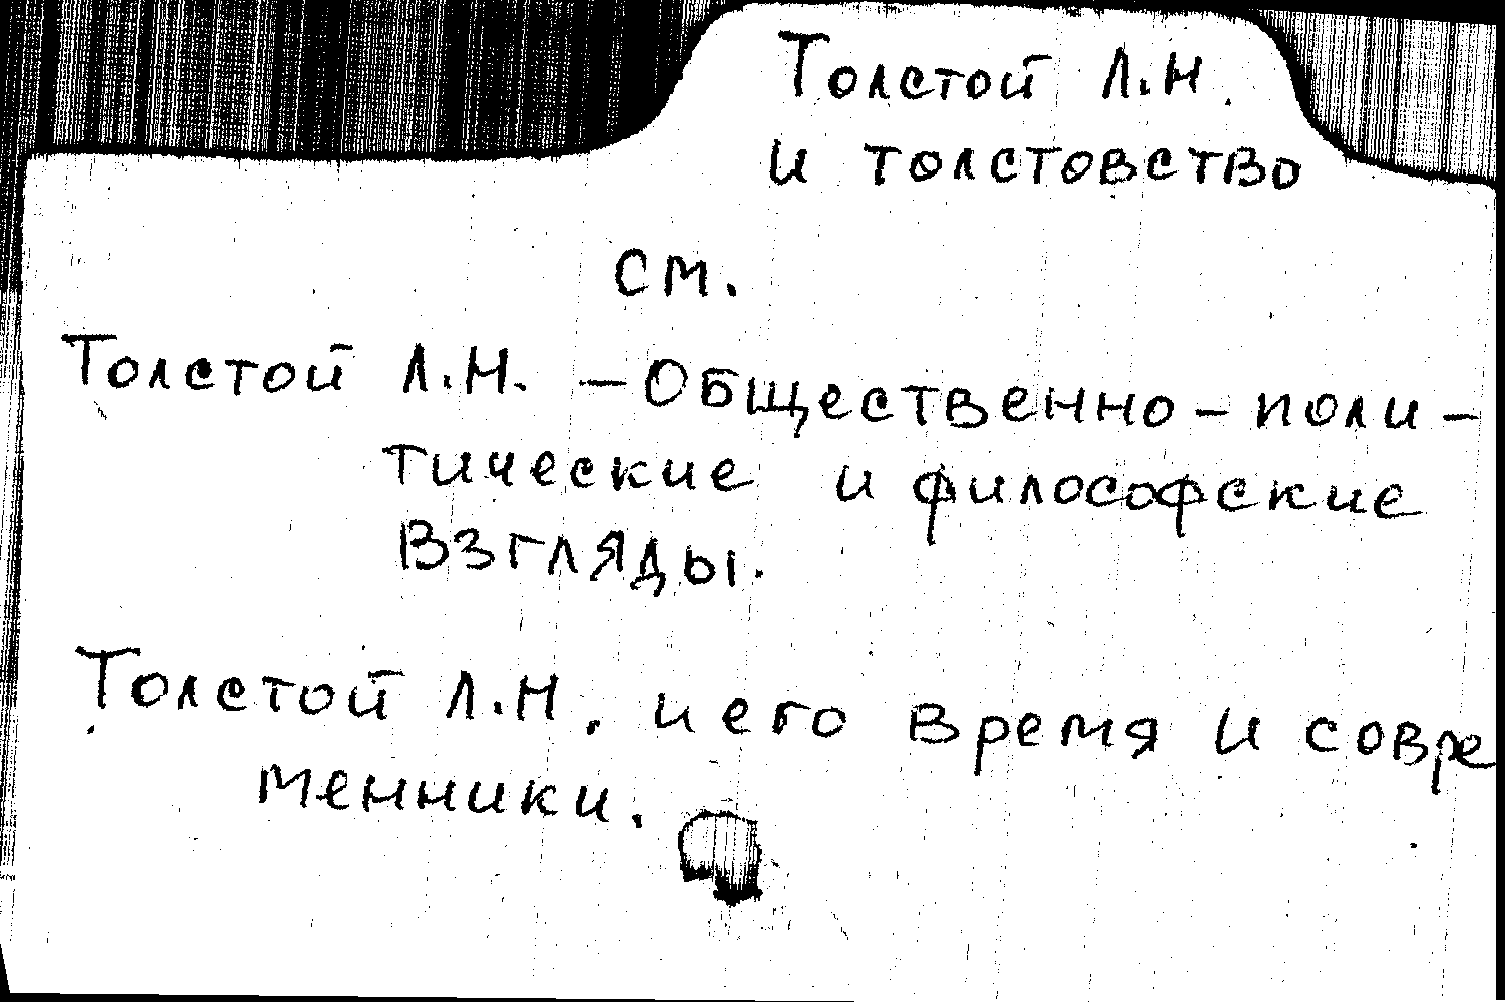 Толстой Л.Н.
и толстовство
см.
Толстой Л.Н. – Общественно-поли-
тические и философские
взгляды.
Толстой Л.Н. и его время и совре
менники.